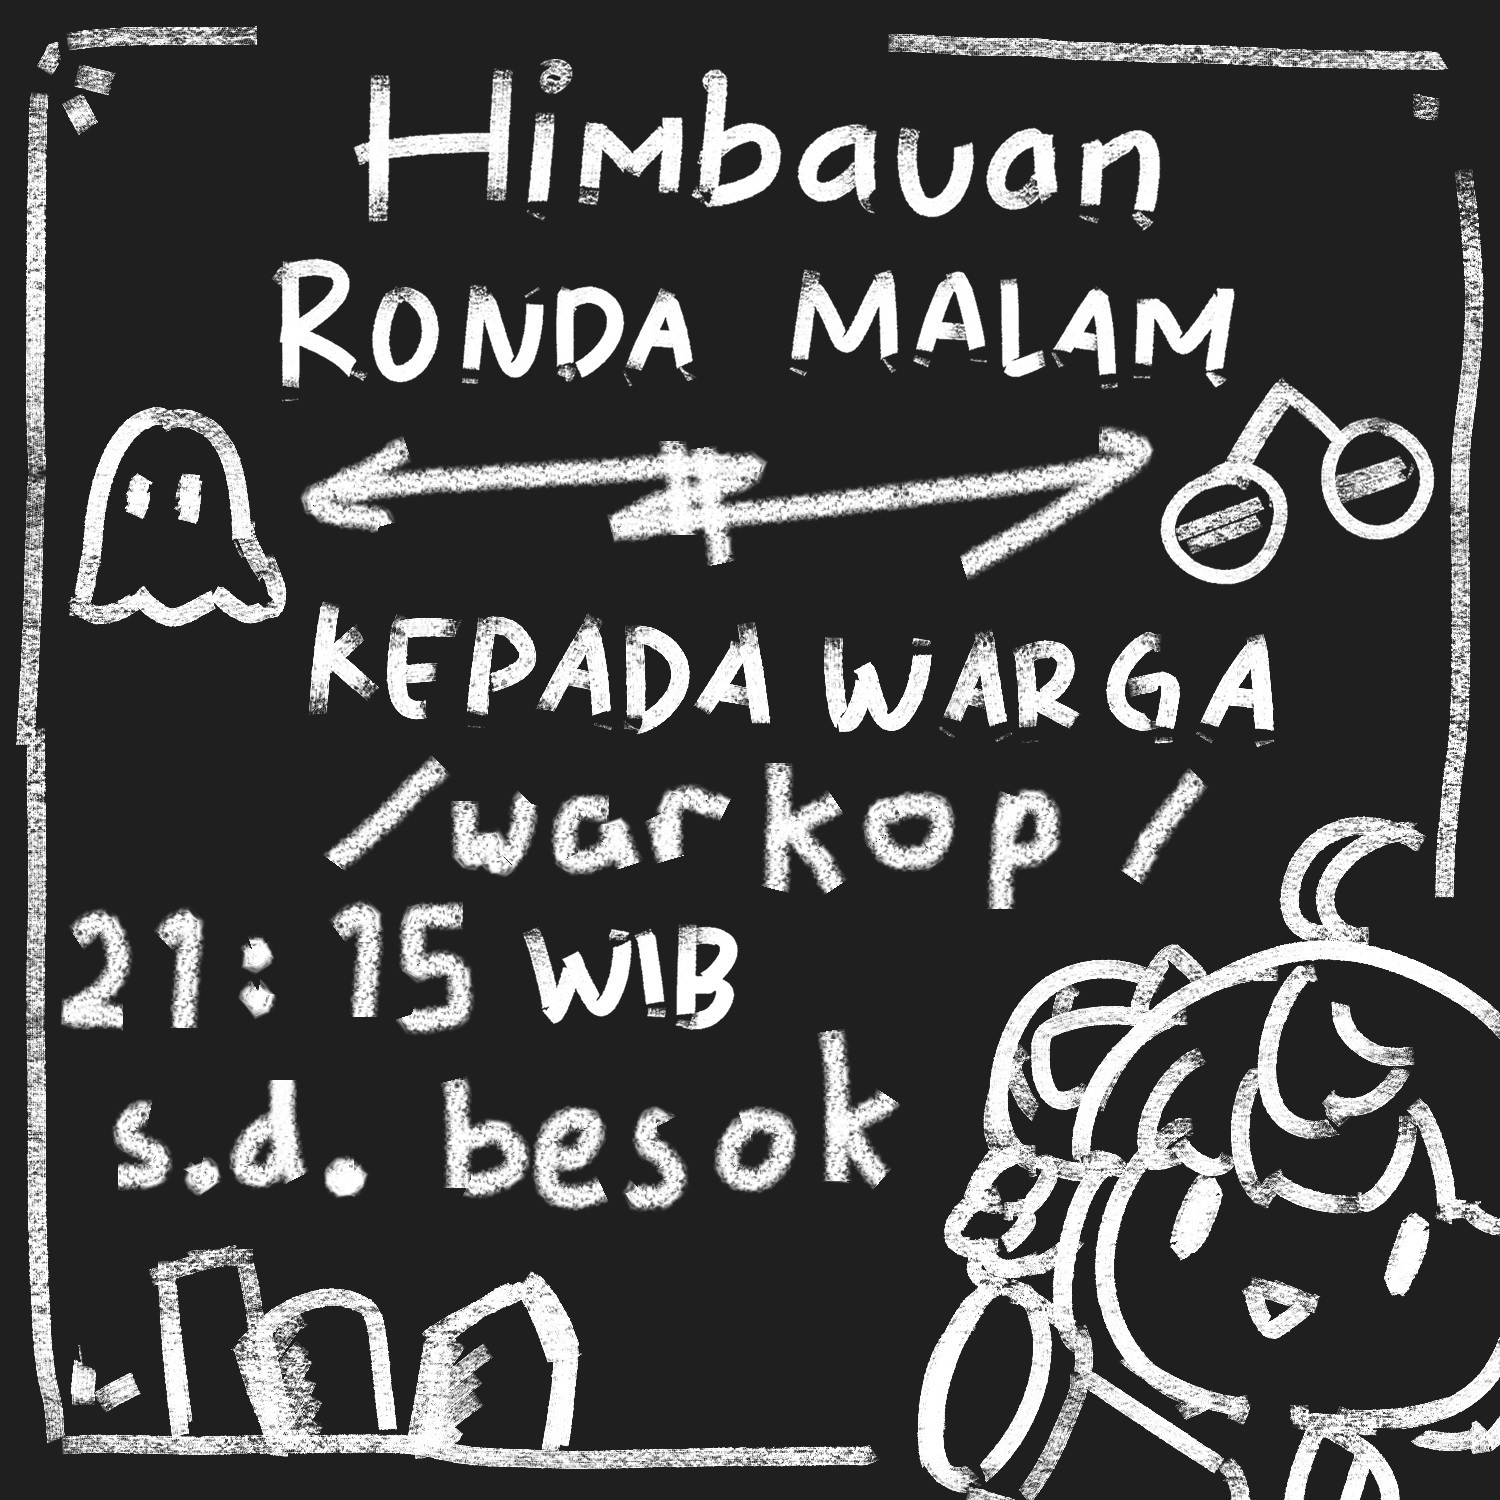 Himbauan
RONDA MALAM
KEPADA WARGA
/warkop/
21:15 WIB
s.d. besok